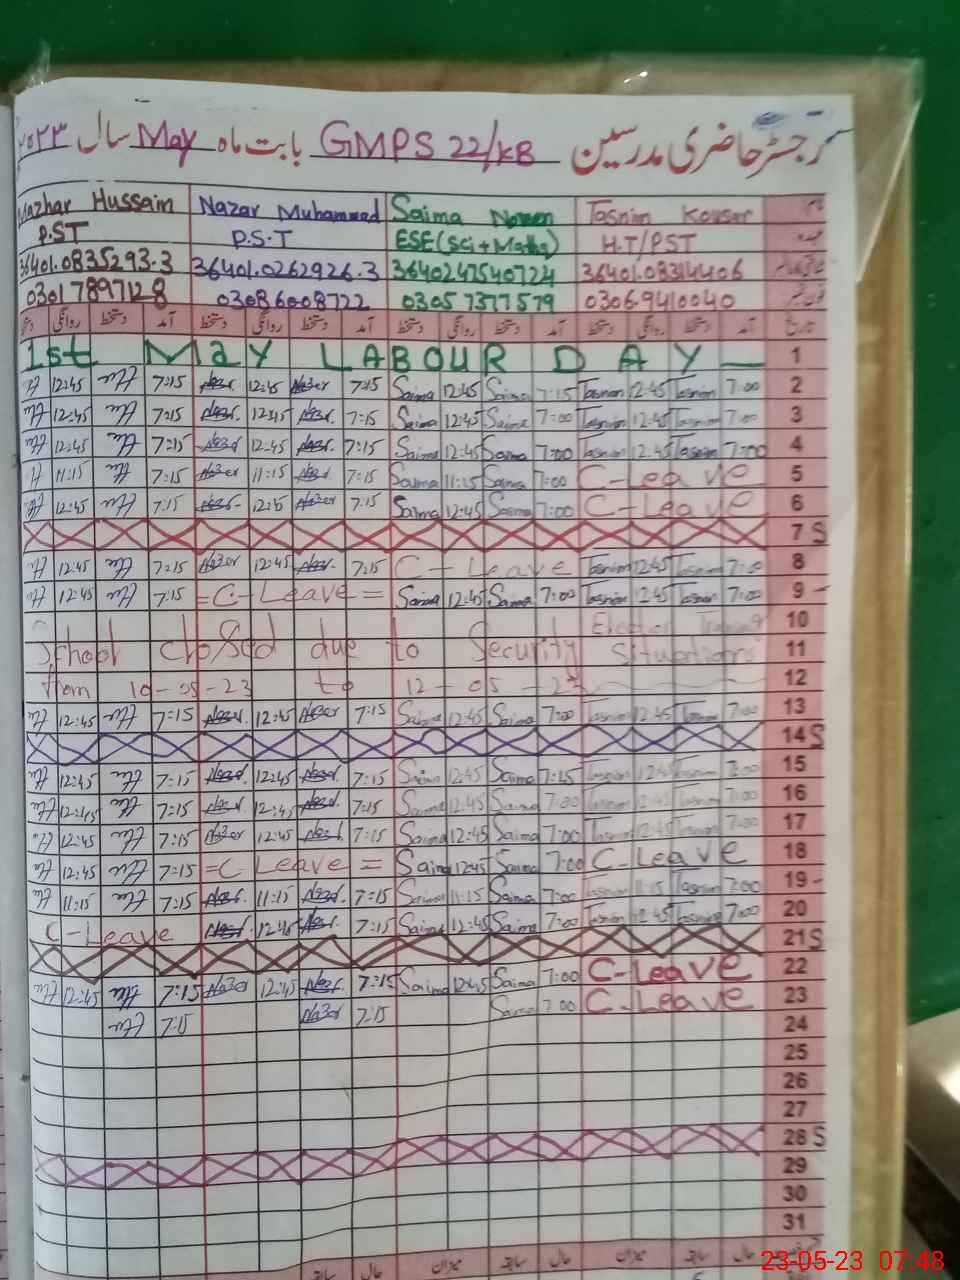 رجسٹر حاضری مدرسین GMPS 22/KB بابت ماہ May سال ٢٠٢٣
Mazhar Hussain Nazar Muhammad Saima Noreen Tasnim Kousar نام
P.ST P.S.T ESE(Sci+Maths) H.T/PST عہدہ
36401.0835293.3 36401.0262926.3 3640247540724 36401.08314406
03017897128 03086008722 03057377579 0306.9410040
روانگی دستخط آمد دستخط روانگی دستخط آمد دستخط روانگی دستخط آمد دستخط روانگی دستخط آمد تاریخ
1st May LABOUR DAY 1
12:45 7:15 12:45 Nazer 7:15 Saima 12:45 Saima 7:15 Tasnim 12:45 Tasnim 7:00 2
12:45 7:15 12:45 7:15 Saima 12:45 Saima 7:00 Tasnim 12:45 Tasnim 7:00 3
12:45 7:15 12:45 7:15 Saima 12:45 Saima 7:00 Tasnim 12:45 Tasnim 7:00 4
11:15 7:15 Nazer 11:15 7:15 Saima 11:15 Saima 7:00 C-Leave 5
12:45 7:15 12:45 Nazer 7:15 Saima 12:45 Saima 7:00 C-Leave 6
7 S
12:45 7:15 Nazer 12:45 7:15 C-Leave Tasnim 12:45 Tasnim 7:00 8
12:45 7:15 =C-Leave= Saima 12:45 Saima 7:00 Tasnim 12:45 Tasnim 7:00 9
Election Training 10
School closed due to Security Situations 11
from 10-05-23 to 12-05-23 12
12:45 7:15 12:45 Nazer 7:15 Saima 12:45 Saima 7:00 Tasnim 12:45 Tasnim 7:00 13
14 S
12:45 7:15 12:45 7:15 Saima 12:45 Saima 7:15 Tasnim 12:45 Tasnim 7:00 15
12:45 7:15 12:45 7:15 Saima 12:45 Saima 7:00 Tasnim 12:45 Tasnim 7:00 16
12:45 7:15 Nazer 12:45 7:15 Saima 12:45 Saima 7:00 Tasnim 12:45 Tasnim 7:00 17
12:45 7:15 =C Leave= Saima 12:45 Saima 7:00 C-Leave 18
11:15 7:15 11:15 7:15 Saima 11:15 Saima 7:00 Tasnim 11:15 Tasnim 7:00 19
C-Leave 12:45 7:15 Saima 12:45 Saima 7:00 Tasnim 12:45 Tasnim 7:00 20
21 S
12:45 7:15 Nazer 12:45 7:15 Saima 12:45 Saima 7:00 C-Leave 22
7:15 Nazer 7:15 Saima 7:00 C-Leave 23
24
25
26
27
28 S
29
30
31
سابقہ حال میزان سابقہ حال میزان سابقہ حال
23-05-23 07:48